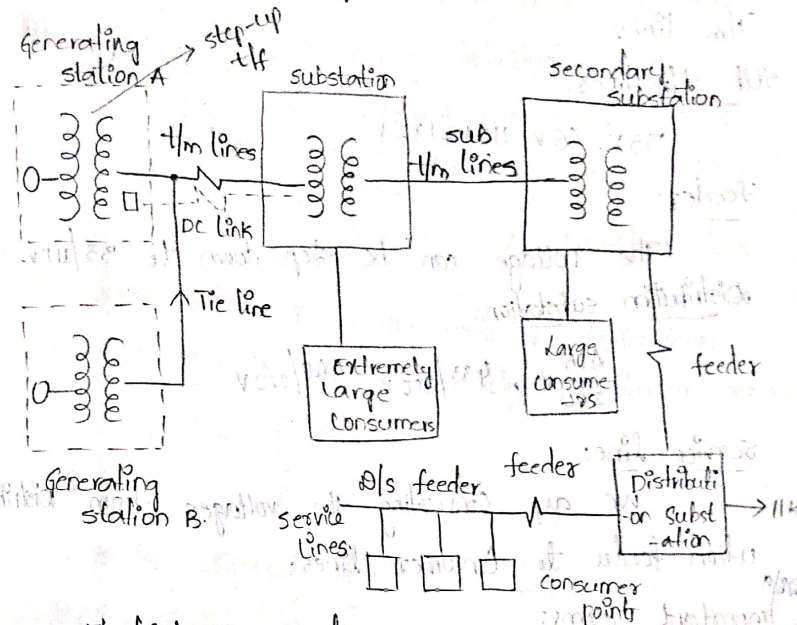 Generating
station A
step-up
t/f
substation
secondary
substation
t/m lines
sub
t/m lines
DC link
Tie line
Extremely
Large
Consumers
Large
consume
-rs
feeder
Generating
station B.
D/s feeder
feeder
service
lines.
Distributi
-on Subst
-ation
consumer
points